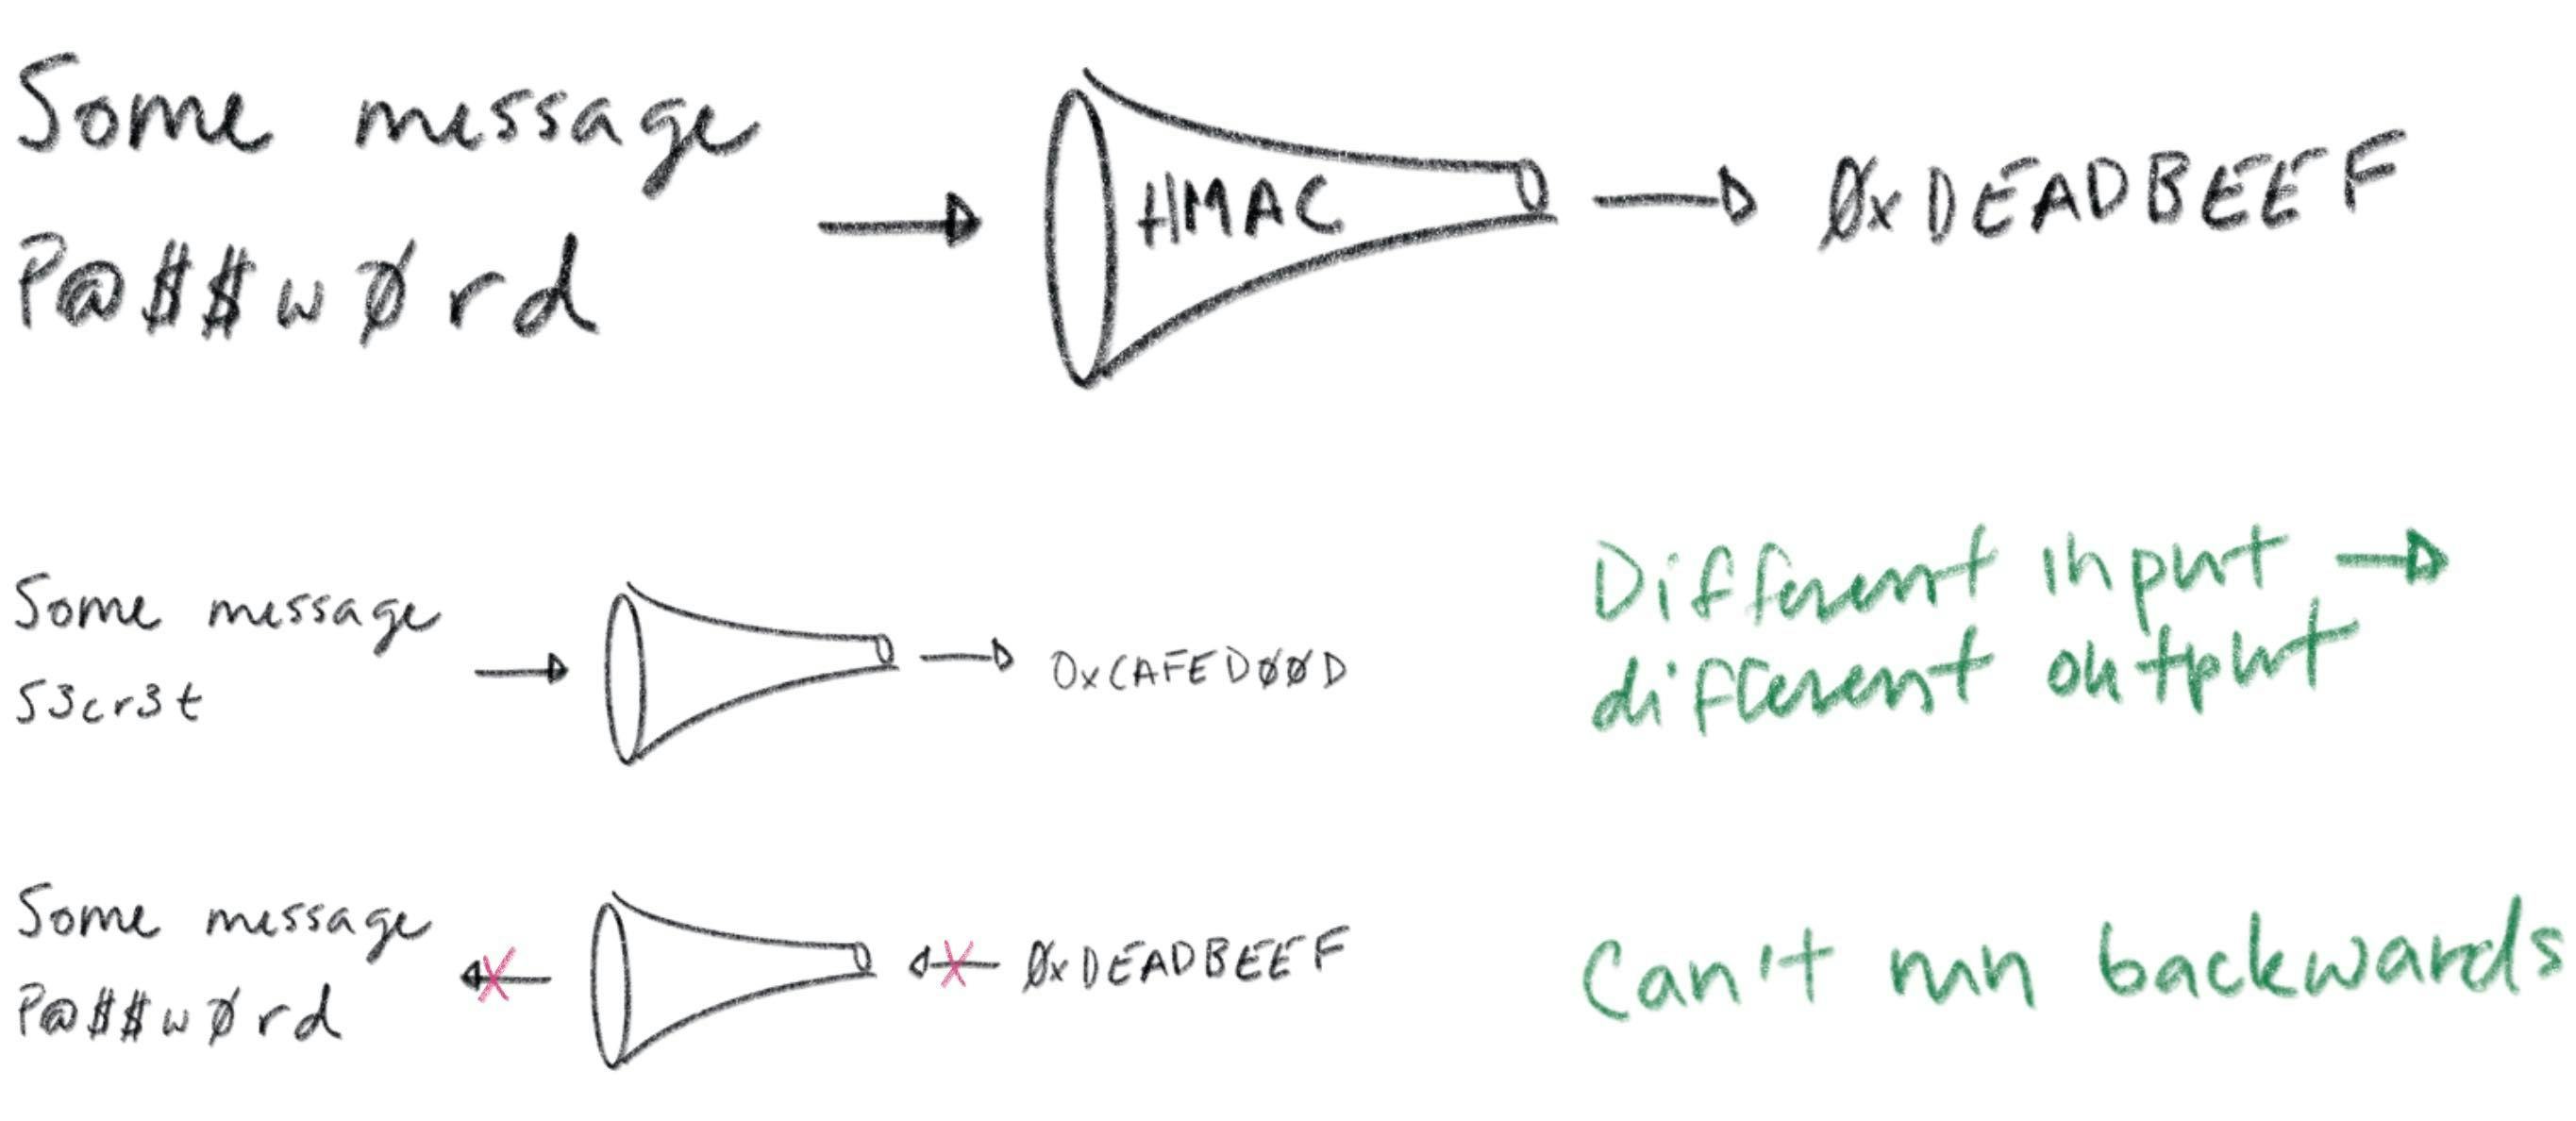 Some message
P@$$wØrd
HMAC
ØxDEADBEEF
Some message
S3cr3t
0xCAFEDØØD
Different input →
different output
Some message
P@$$wØrd
ØxDEADBEEF
Can't run backwards